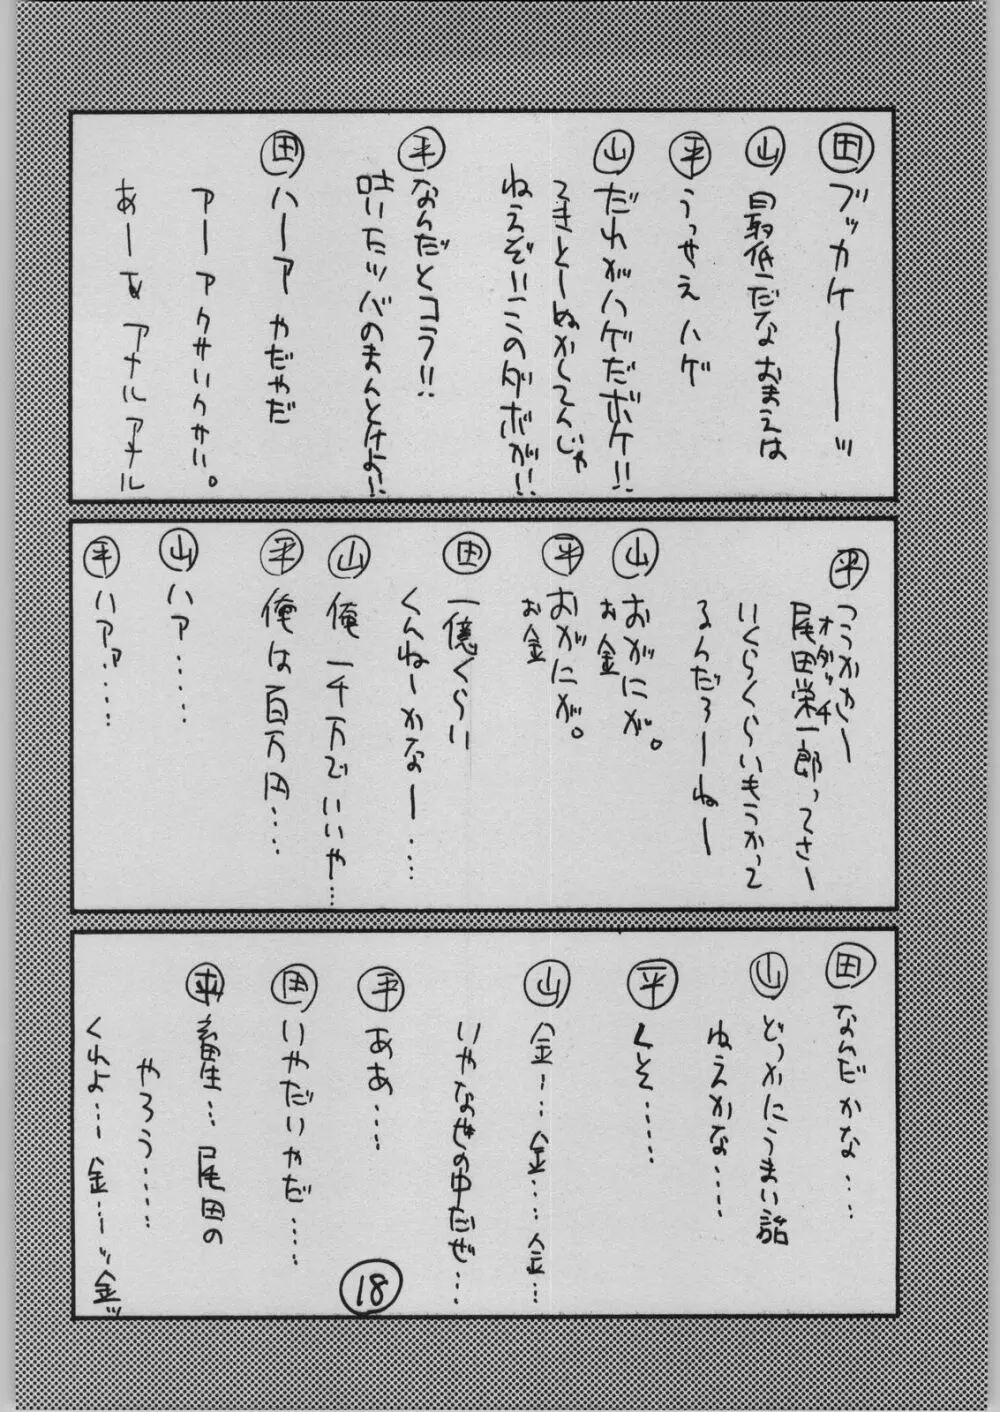 田 ブッカケーーッ
山 最低だなおまえは
平 うっせえハゲ
山 だれがハゲだボケ!!
てきとーぬかしてんじゃ
ねえぞいこのダボが!!
平 なんだとコラ!!
吐いたツバのまんとけよ!!
田 ハーア やだやだ
アーアクサいクサい。
あーあ アナルアナル
平 つうかさー
尾田栄一郎ってさー
オダッチ
いくらくらいもうかって
るんだろーねー
山 おがにが。
お金
平 おがにが。
お金
田 一億くらい
くんねーかなー…
山 俺 一千万でいいや…
平 俺は百万円……
山 ハア……
平 ハァァ……
田 なんだかな……
山 どっかにうまい話
ねえかな……
平 くそ……
山 金… 金… 金…
いやなぜの中だぜ…
平 ああ…
田 いやだいやだ…
平 畜生… 尾田の
やろう……
くれよ… 金…ッ金ッ
18